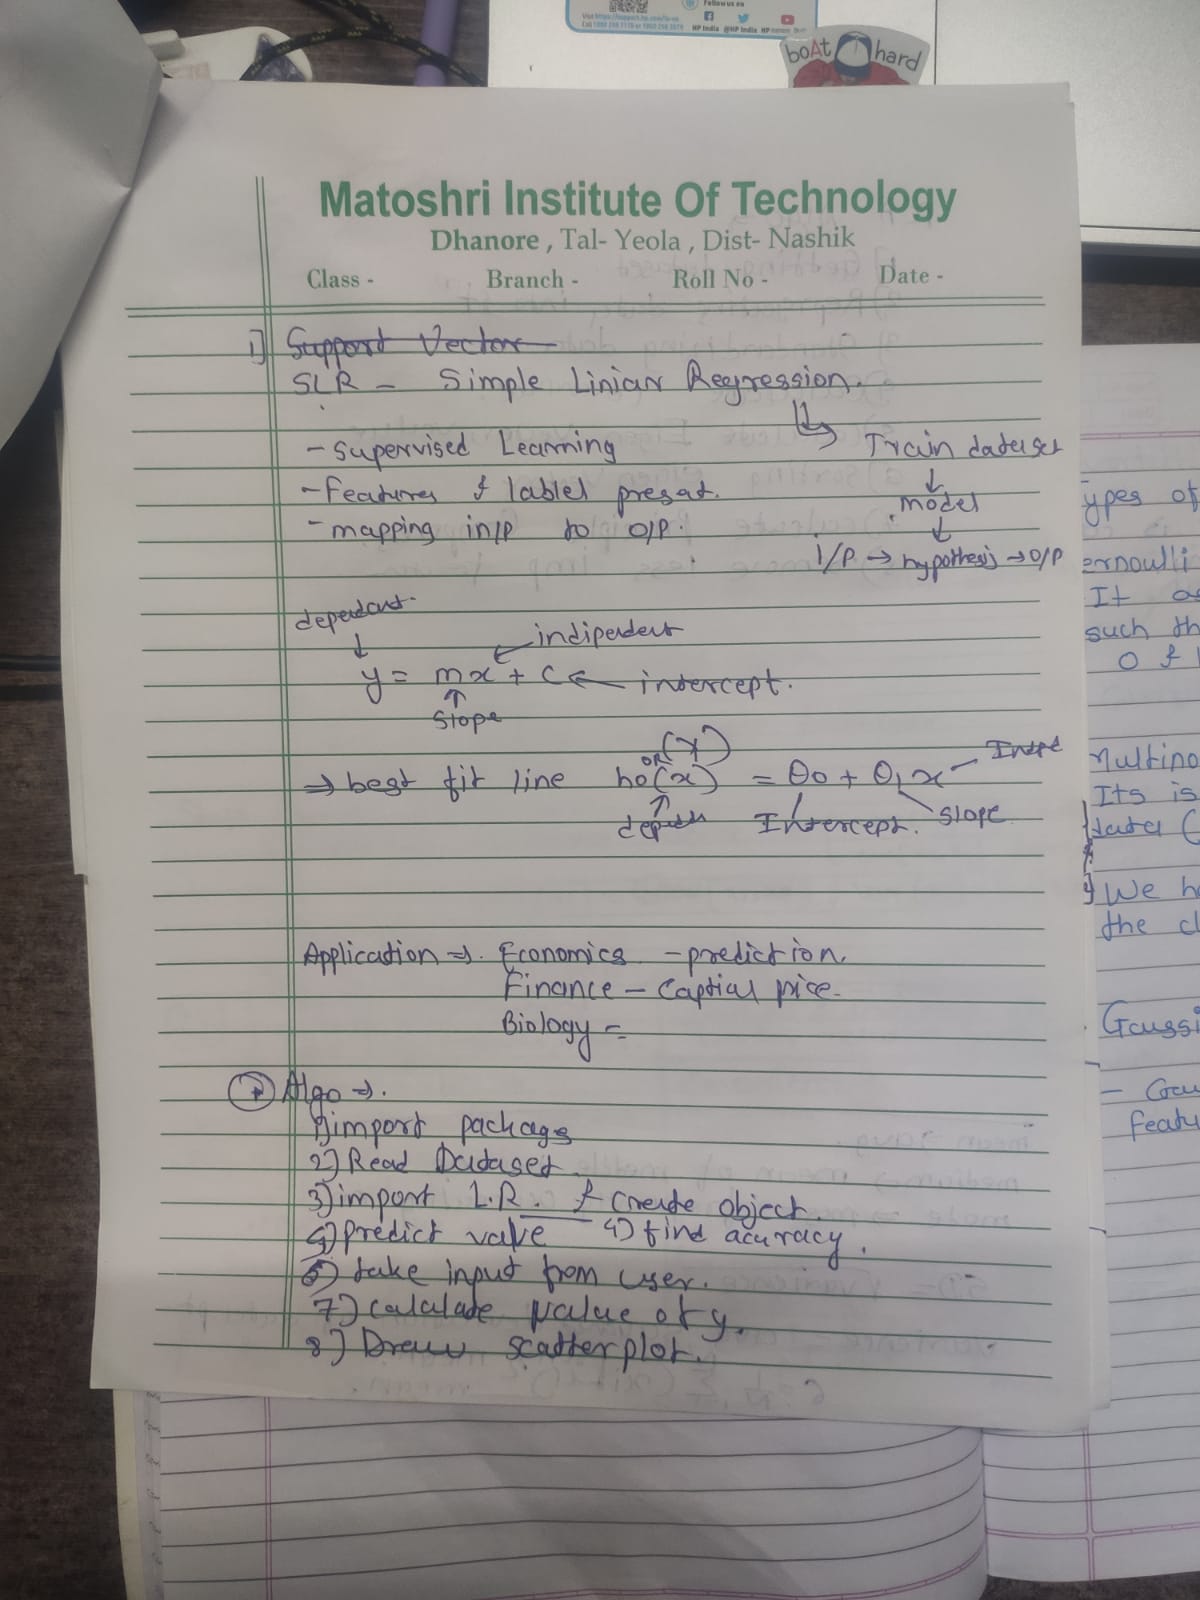 Follow us on
HP India @HP India
boAt hard
Matoshri Institute Of Technology
Dhanore , Tal- Yeola , Dist- Nashik
Class - Branch - Roll No - Date -
1] Support Vector
SLR - Simple Liniar Regression.
- Supervised Learning
Train dataset
- Features & lablel presat.
model
- mapping in/p to O/P.
I/P → hypothesis → O/P
dependant.
indipendent
y = mx + c ← intercept.
slope
or (y)
⇒ best fit line ho(x) = θ0 + θ1x
Intercept. slope
Application ⇒. Economics - prediction.
Finance - Captial price.
Biology -
Algo ⇒.
1) import package
2) Read Dataset.
3) import L.R. & create object.
4) predict value 4) find acuracy.
6) take input from user.
7) calculate value of y.
8) Draw scatterplot.
ypes of
ernoulli
It
such th
0 & 1
Multino
Its is
data (
We ha
the cl
Gaussi
- Gau
featu